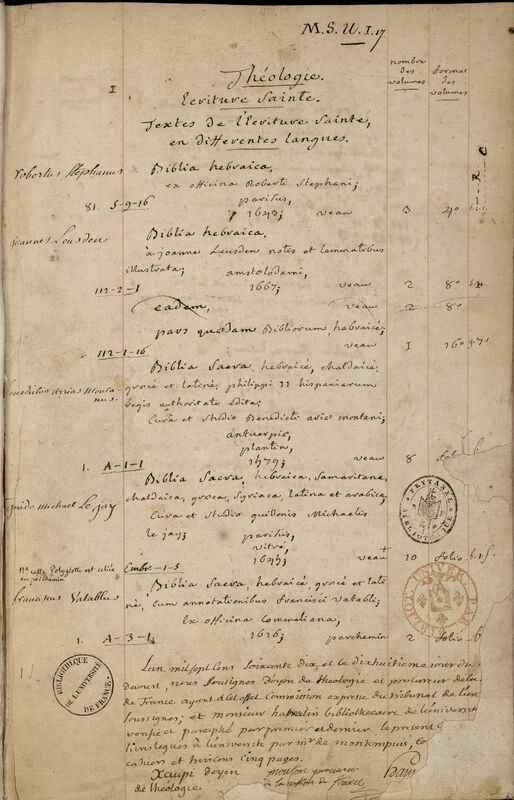 M.S. U. I. 17
nombre des volumes
format des volumes
I
Théologie.
Ecriture Sainte.
Textes de l'Ecriture Sainte,
en differentes langues.
Robertus Stephanus
Biblia hebraica,
ex officina Roberti Stephani;
parisiis,
81. 5-9-16
1643; veau 3 4º
joannes Leusden
Biblia hebraica,
à joanne Leusden notis et lemmatibus
illustrata; amstelodami,
1667; veau 2 8º
112-2-1
eadem, veau 2 8º
pars quædam Bibliorum, hebraicè;
112-1-16
veau I 16º
Biblia Sacra, hebraicè, chaldaicè,
græcè et latinè; philippi II hispaniarum
Benedictus Arias Montanus.
Regis authoritate edita;
Cura et Studio Benedicti ariæ montani;
antuerpiæ,
plantin,
1. A-1-1
veau 8 fol.
Biblia Sacra, hebraica, Samaritana,
chaldaica, græca, Syriaca, latina et arabica;
guido Michael Le jay
Cura et Studio guidonis Michaelis
le jay; parisiis,
vitré,
1645; veau 10 folio
Nª cette Polyglotte est reliée
en parchemin
Embr.-1-5
Biblia Sacra, hebraicè, græcè et lati
franciscus Vatablus
nè, Cum annotationibus francisci vatabli;
Ex officina Commeliana,
1. A-3-1
1616; parchemin 2 folio
L'an mil sept Cens Soixante dix, et le dixhuitieme jour du
d'aoust, nous Soussignés Doyen de theologie et procureur de la
de France ayant à cet effet Commission expresse du tribunal de l'un
Soussignés; et monsieur hamelin bibliothecaire de l'université
verifié et paraphé par premier et dernier le present
livres legués à l'université par mr de montempuis,
cahiers et trois cens cinq pages.
Xaupi doyen
de théologie.
procureur
de la nation de france
ham
PRYTANÉE
BIBLIOTHÈQUE
BIBLIOTHÈQUE
DE L'UNIVERSITÉ
DE FRANCE